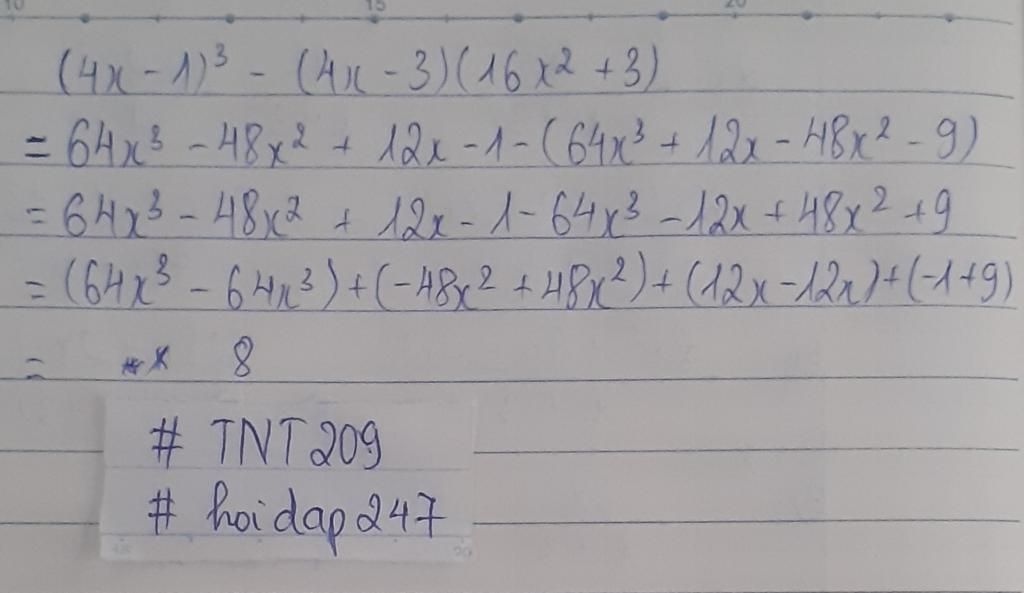 10 15 20
(4x - 1)³ - (4x - 3)(16x² + 3)
= 64x³ - 48x² + 12x - 1 - (64x³ + 12x - 48x² - 9)
= 64x³ - 48x² + 12x - 1 - 64x³ - 12x + 48x² + 9
= (64x³ - 64x³) + (-48x² + 48x²) + (12x - 12x) + (-1 + 9)
= 8
# TNT209
# hoidap247
20